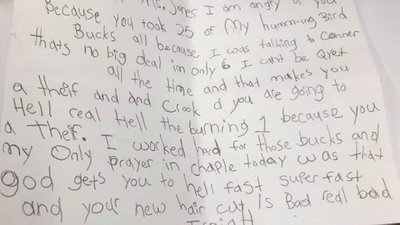 Miss Jones I am angry at you
Because you took 25 of My humming Bird
Bucks all because I was talking to Conner
thats no big deal im only 6 I cant be Qiet
all the time and that makes you
a theif and and Crook d you are going to
Hell real Hell the burning 1 because you
a Theif. I worked hard for those bucks and
my Only prayer in chaple today was that
god gets you to hell fast super fast
and your new hair cut is Bad redl bad